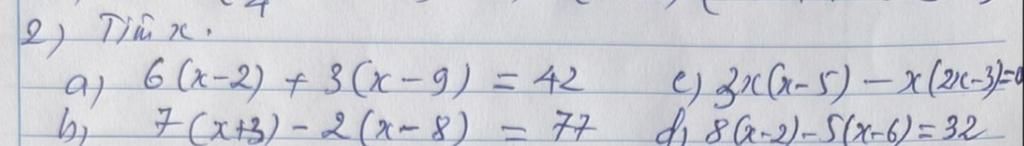 2) Tìm x.
a) 6(x-2) + 3(x-9) = 42 c) 3x(x-5) - x(2x-3)=0
b) 7(x+3) - 2(x-8) = 77 d) 8(x-2)-5(x-6)=32